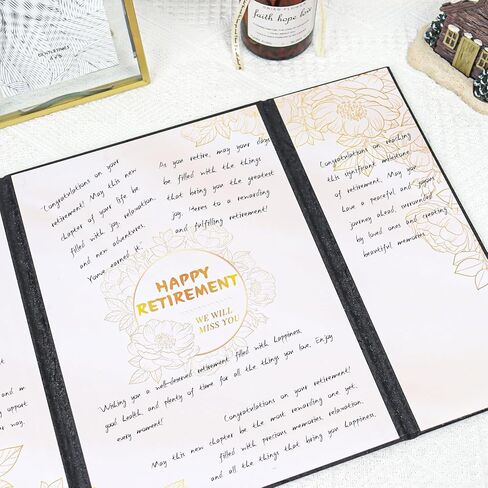 faith hope love
"Congratulations on your
retirement! May this new
chapter of your life be
filled with joy, relaxation,
and new adventures.
You've earned it."
As you retire, may your days
be filled with the things
that bring you the greatest
joy. Here's to a rewarding
and fulfilling retirement!
Congratulations on reaching
this significant milestone
of retirement. May you
have a peaceful and joyous
journey ahead, surrounded
by loved ones and creating
beautiful memories.
HAPPY
RETIREMENT
WE WILL
MISS YOU
Wishing you a well-deserved retirement filled with happiness,
good health, and plenty of time for all the things you love. Enjoy
every moment!
Congratulations on your retirement!
May this new chapter be the most rewarding one yet,
filled with precious memories, relaxation,
and all the things that bring you happiness.